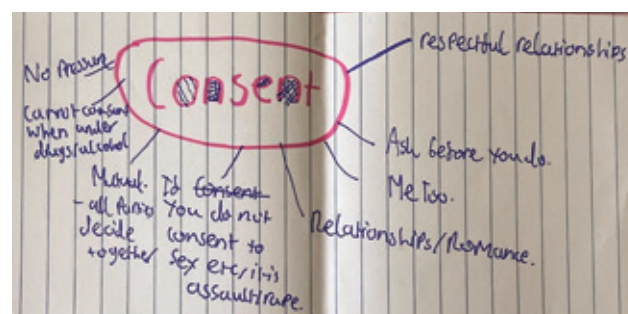 Consent
No Pressure
Cannot consent
when under
drugs/alcohol
Mutual.
- all
decide
together
If Consent
You do not
consent to
sex etc/it is
assault/rape.
Relationships/Romance.
Me Too.
Ask before you do.
respectful relationships